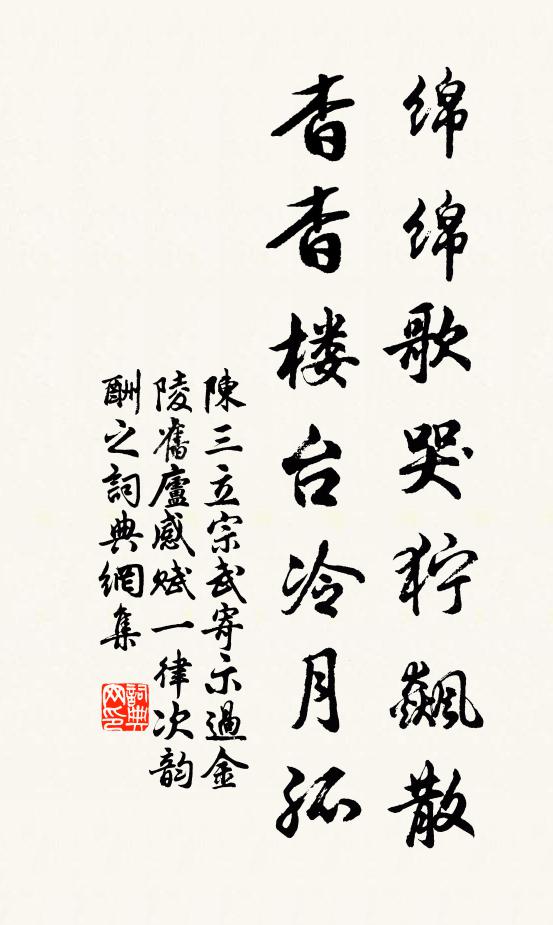 绵绵歌哭狞飆散
杳杳楼台冷月孤
陳三立宗武寄示過金
陵舊廬感赋一律次韵
酬之詞典網集
詞典
网印